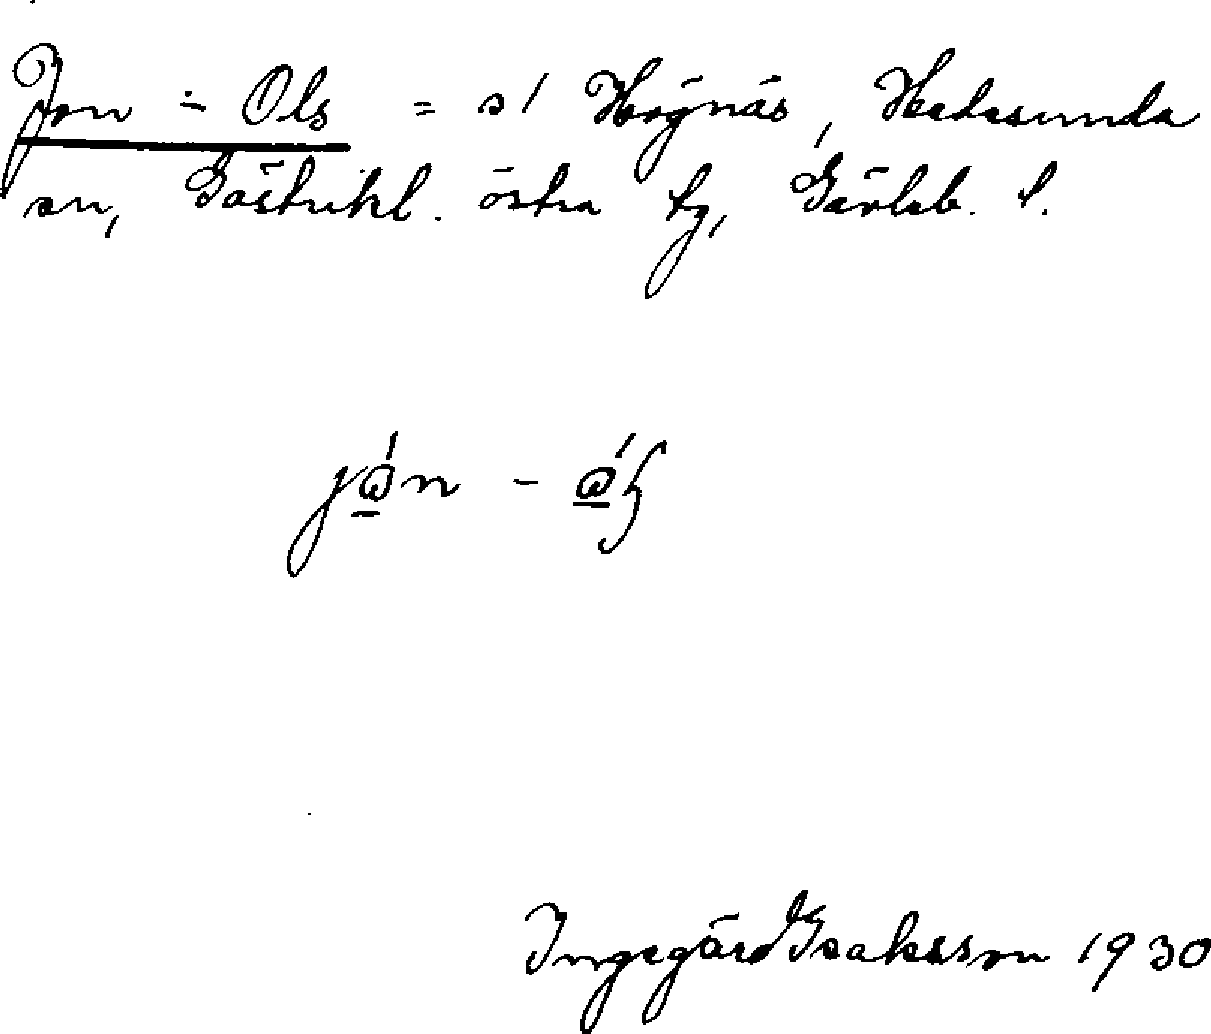 Jon - Ols = s/ Högnäs, Hedesunda
sn, Gästrikl. östra tg, Gävleb. l.
Ingegärd Isaksson 1930